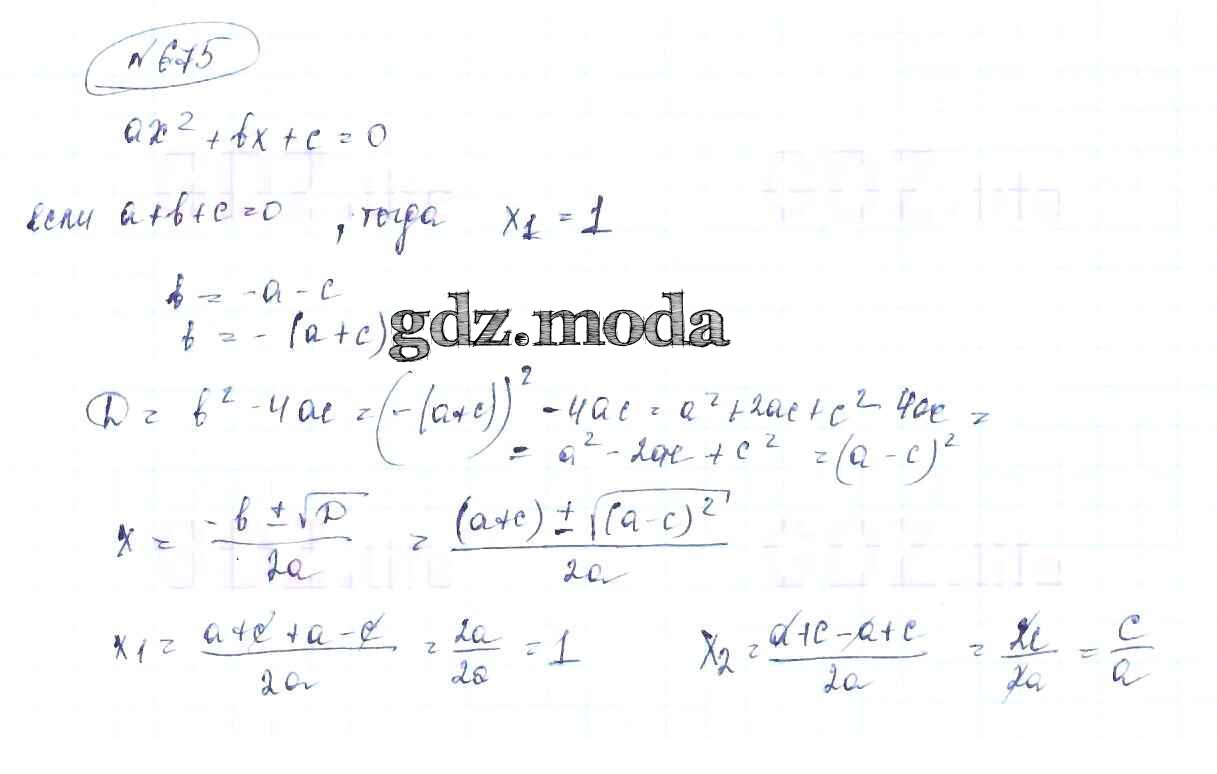 №675
ax² + bx + c = 0
если a+b+c=0, тогда x₁ = 1
b = -a - c
b = - (a+c)
gdz.moda
D = b² - 4ac = (-(a+c))² - 4ac = a² + 2ac + c² - 4ac =
= a² - 2ac + c² = (a - c)²
x = (-b ± √D)/2a = ((a+c) ± √(a-c)²)/2a
x₁ = (a+c+a-c)/2a = 2a/2a = 1 x₂ = (a+c-a+c)/2a = 2c/2a = c/a